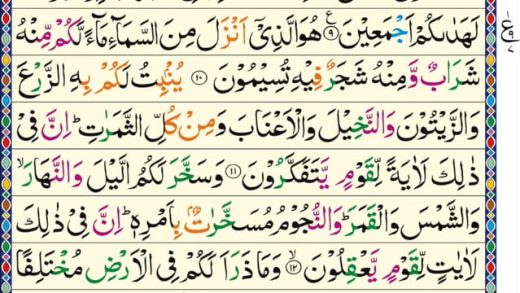 لَهَدٰىكُمْ اَجْمَعِيْنَ ۟ۧ ۹ هُوَ الَّذِيْۤ اَنْزَلَ مِنَ السَّمَآءِ مَآءً لَّكُمْ مِّنْهُ
شَرَابٌ وَّمِنْهُ شَجَرٌ فِيْهِ تُسِيْمُوْنَ ۱۰ يُنْۢبِتُ لَكُمْ بِهِ الزَّرْعَ
وَالزَّيْتُوْنَ وَالنَّخِيْلَ وَالْاَعْنَابَ وَمِنْ كُلِّ الثَّمَرٰتِ ؕ اِنَّ فِيْ
ذٰلِكَ لَاٰيَةً لِّقَوْمٍ يَّتَفَكَّرُوْنَ ۱۱ وَسَخَّرَ لَكُمُ الَّيْلَ وَالنَّهَارَ ۙ
وَالشَّمْسَ وَالْقَمَرَ ؕ وَالنُّجُوْمُ مُسَخَّرٰتٌۢ بِاَمْرِهٖ ؕ اِنَّ فِيْ ذٰلِكَ
لَاٰيٰتٍ لِّقَوْمٍ يَّعْقِلُوْنَ ۙ ۱۲ وَمَا ذَرَاَ لَكُمْ فِي الْاَرْضِ مُخْتَلِفًا